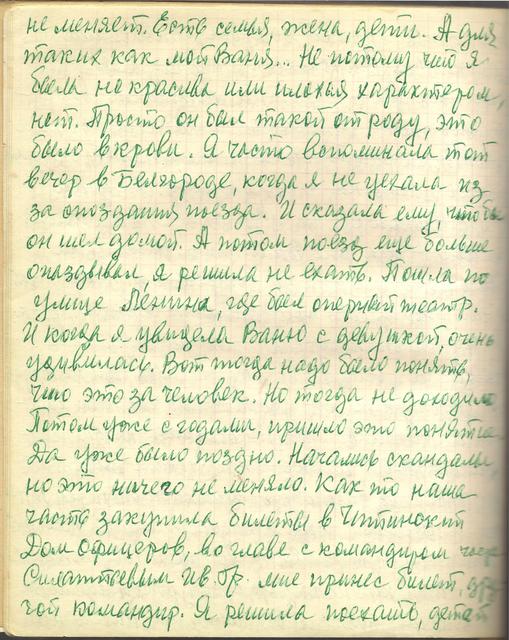 не меняет. Есть семья, жена, дети. А для
таких как мой Ваня... Не потому что я
была не красива или плохая характером,
нет. Просто он был такой от роду, это
было в крови. Я часто вспоминала тот
вечер в Белгороде, когда я не уехала из
за опоздания поезда. И сказала ему, чтобы
он шел домой. А потом поезд еще больше
опаздывал, я решила не ехать. Пошла по
улице Ленина, где был оперный театр.
И когда я увидела Ваню с девушкой, очень
удивилась. Вот тогда надо было понять,
что это за человек. Но тогда не доходило
Потом уже с годами, пришло это понятие
Да уже было поздно. Начались скандалы,
но это ничего не меняло. Как то наша
часть закупила билеты в Читинский
Дом офицеров, во главе с командиром части
Ив. Гр. мне принес билет, дру
гой командир. Я решила поехать, детей